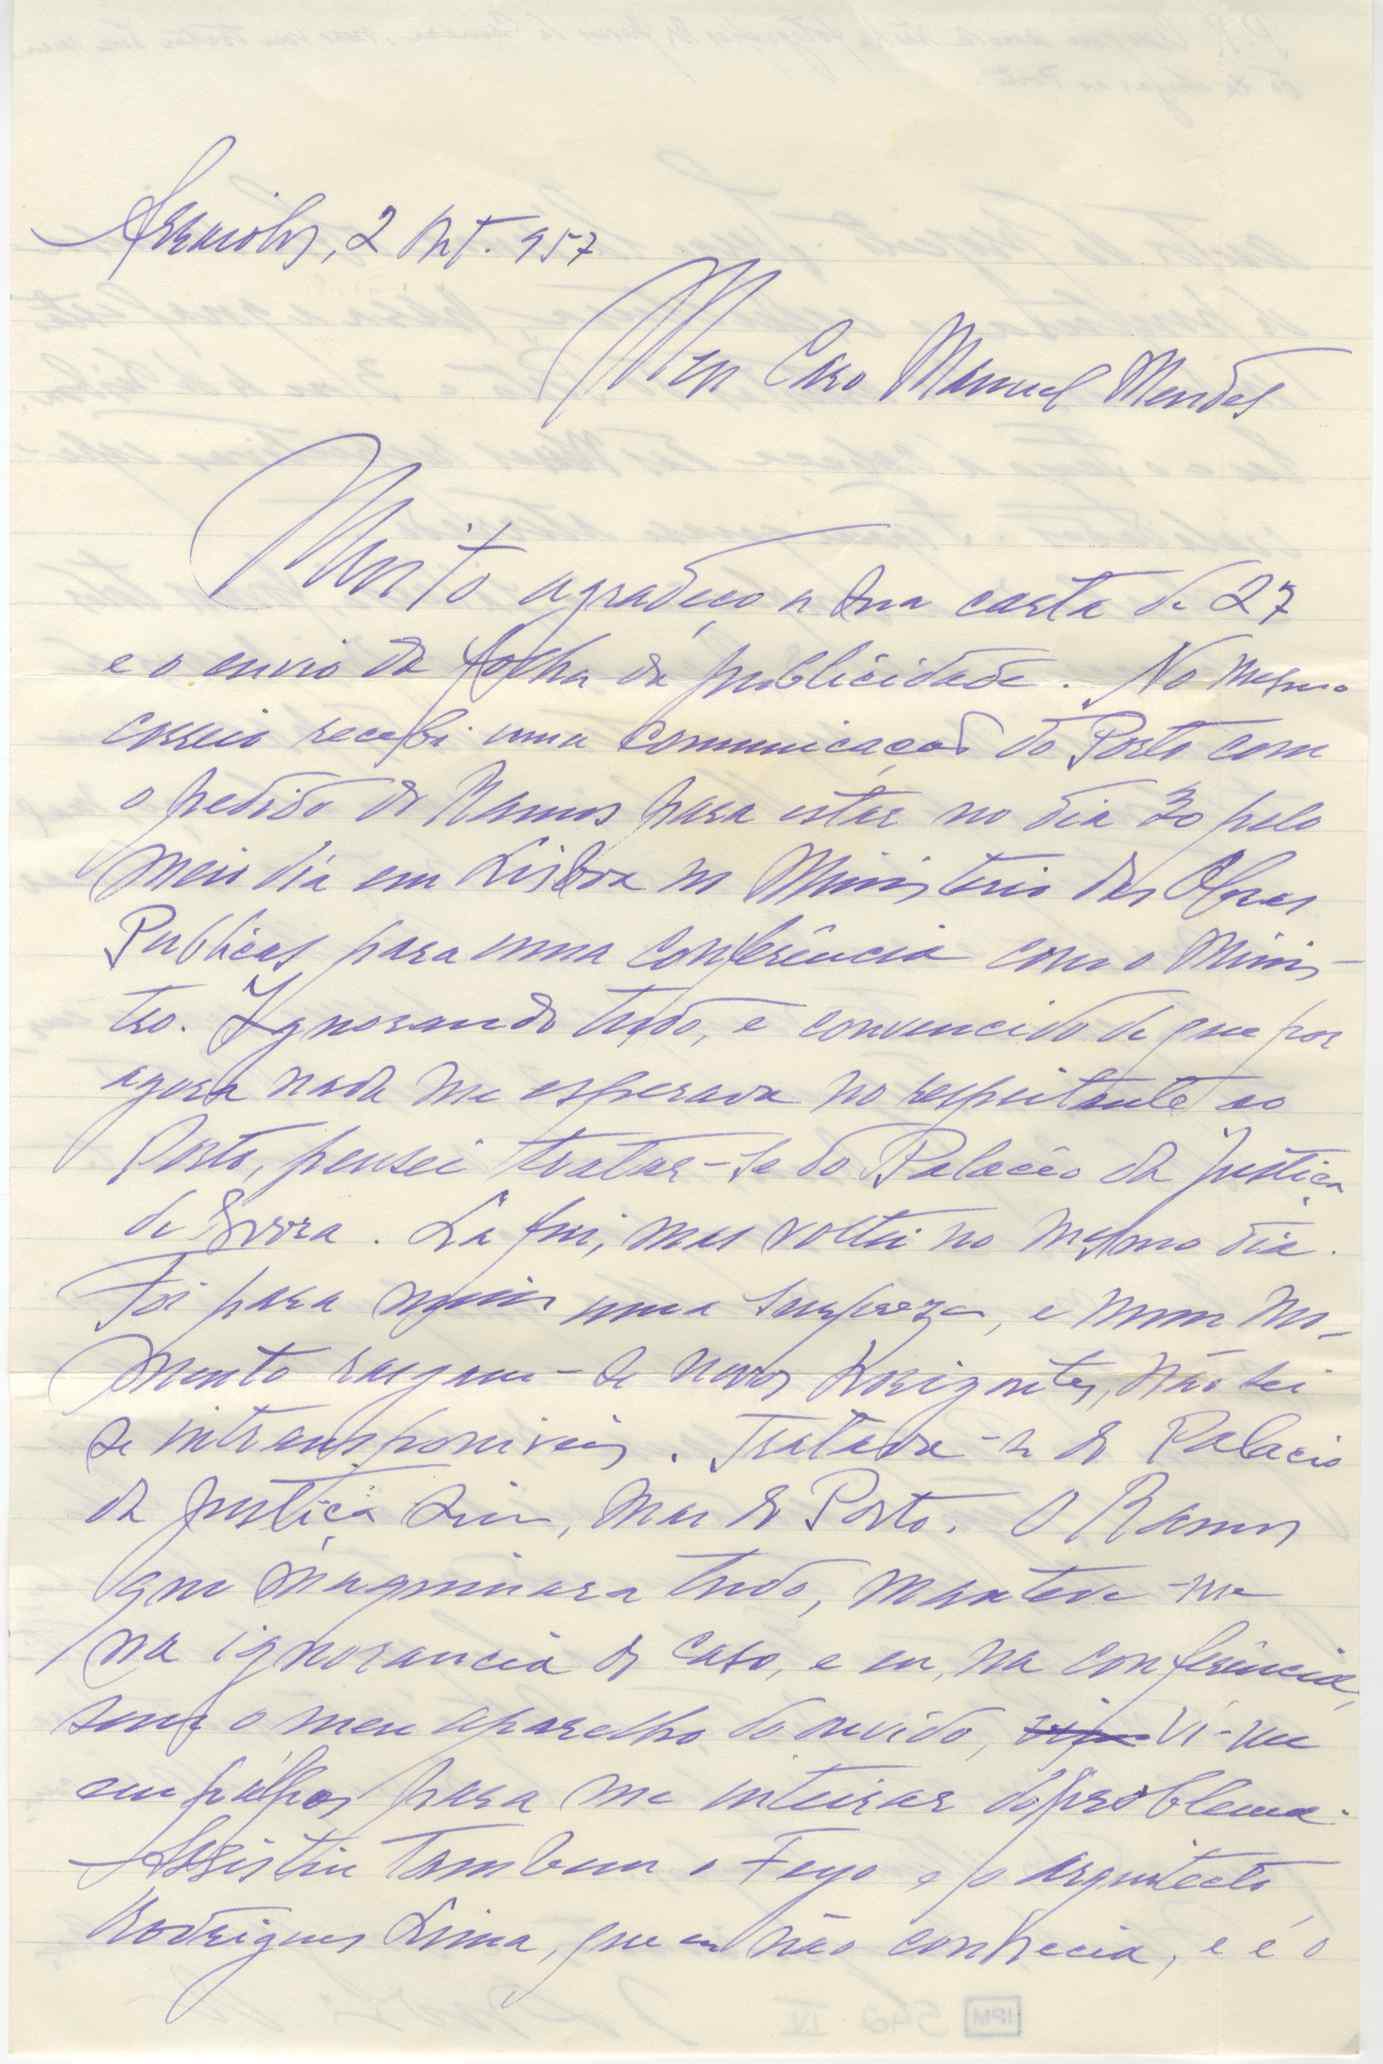 Arraiolos, 2 Set. 957
Meu Caro Manuel Mendes
Muito agradeço a sua carta de 27
e o envio da folha da publicidade. No mesmo
correio recebi uma comunicação do Porto com
o pedido do Ramos para estar no dia 30 pelo
meio dia em Lisboa no Ministerio das Obras
Publicas para uma conferência com o Minis-
tro. Ignorando tudo, e convencido de que por
agora nada me esperava no respeitante ao
Porto, pensei tratar-se do Palacio da Justiça
de Evora. La fui, mas voltei no mesmo dia.
Foi para mim uma surpreza, e num mo-
mento rasgam-se novos horizontes, não sei
se intransponiveis. Tratava-se do Palacio
da Justiça sim, mas do Porto. O Ramos
que maquinara tudo, manteve-me
na ignorancia do caso, e eu, na conferência,
sem o meu aparelho do ouvido, vi-me
em palpos para me inteirar do problema.
Assistiu tambem o Feyo e o arquitecto
Rodrigues Lima, que eu não conhecia, e é o